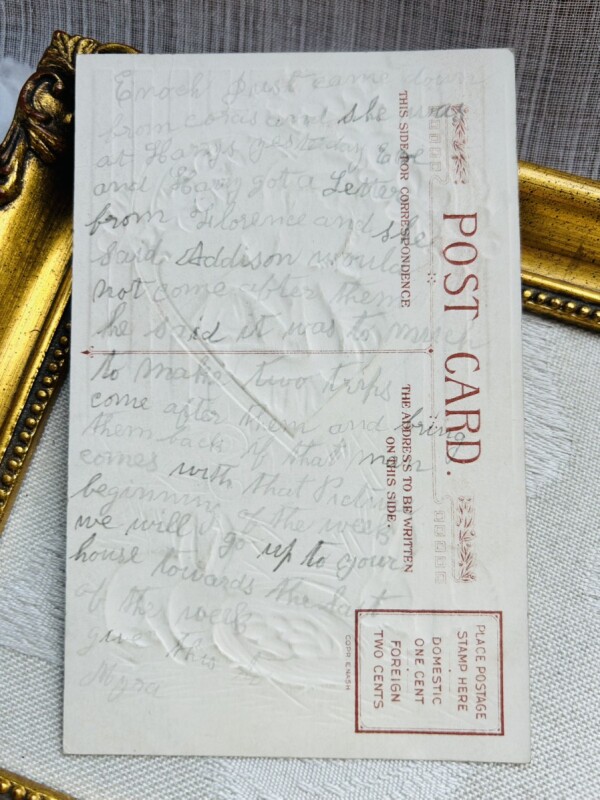 Enoch Just came down
from and she was
at Harrys yesterday Eve
and Harry got a Letter
from Florence and she
said Addison would
not come after them
he said it was to much
to make two trips
come after them and bring
them back if that man
comes with that Picture
beginning of the week
we will go up to your
house towards the Last
of the week
this
Myra
THIS SIDE FOR CORRESPONDENCE
POST CARD.
THE ADDRESS TO BE WRITTEN
ON THIS SIDE.
PLACE POSTAGE
STAMP HERE
DOMESTIC
ONE CENT
FOREIGN
TWO CENTS
COPR E.NASH